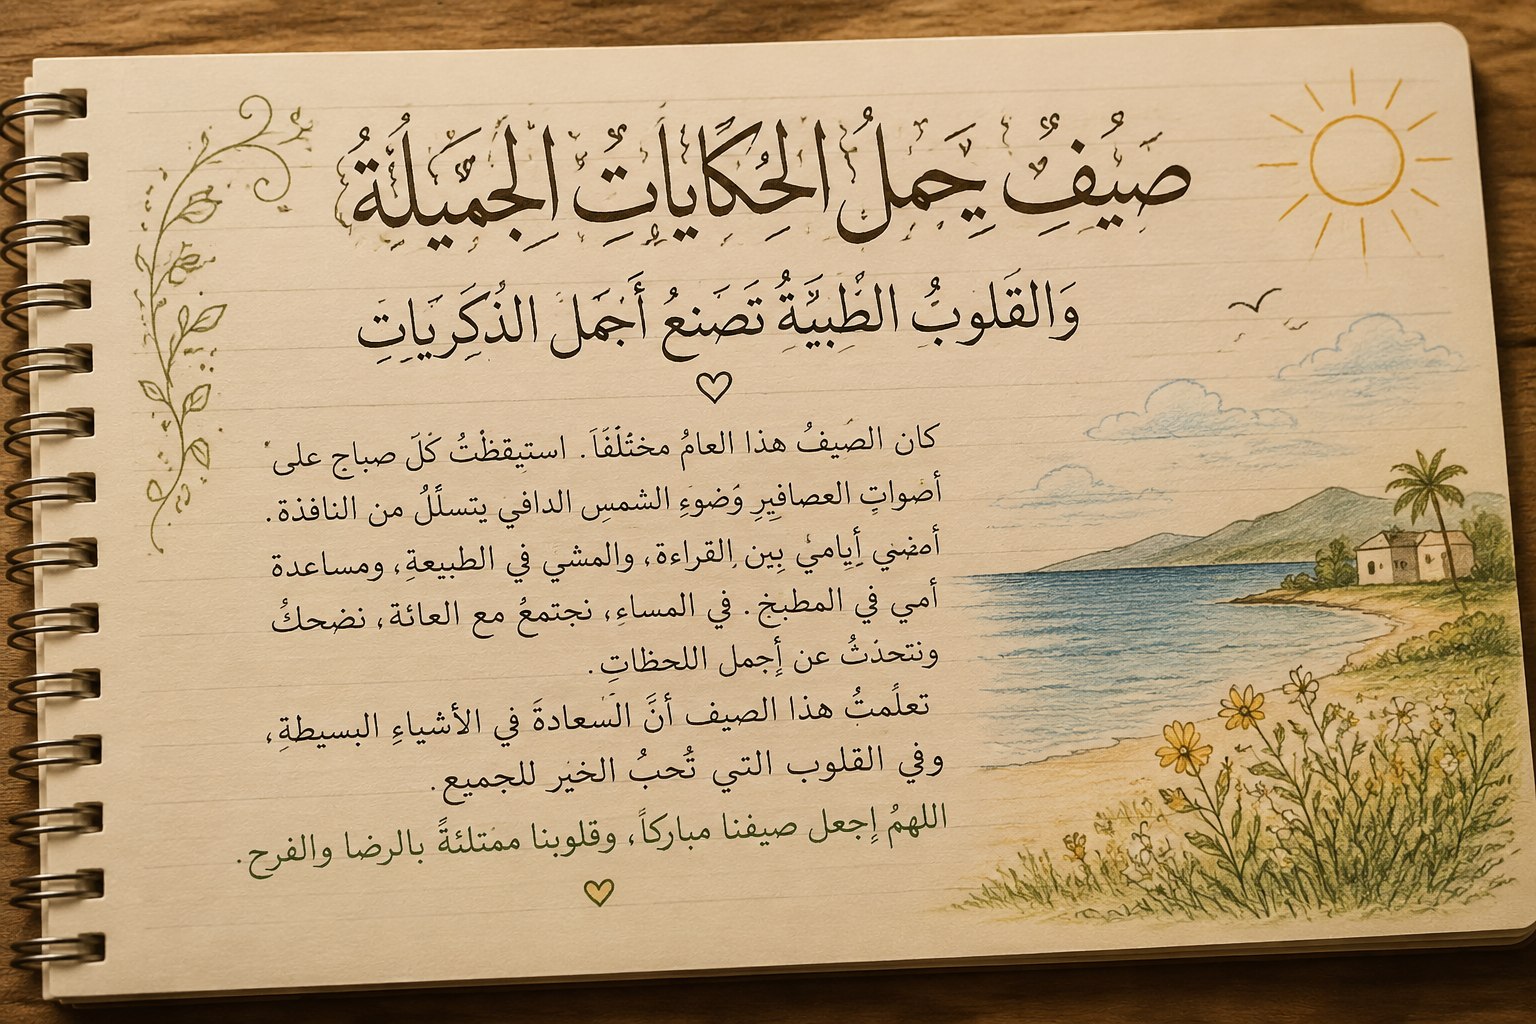 صيفٌ يحملُ الحكاياتِ الجميلةُ
وَالقلوبُ الطّبيَّةُ تَصنعُ أَجمَل الذكرِيَاتِ
كان الصيفُ هذا العامُ مختلفاً. استيقظتُ كلَّ صباح على
أصواتِ العصافيرِ وَضوءِ الشمسِ الدافي يتسلّلُ من النافذة.
أمضي إيامي بين القراءة، والمشي في الطبيعةِ، ومساعدة
أمي في المطبخ. في المساءِ، نجتمعُ مع العائة، نضحكُ
ونتحدثُ عن إجمل اللحظاتِ.
تعلمتُ هذا الصيف أنَّ السعادةَ في الأشياءِ البسيطةِ،
وفي القلوب التي تُحبُ الخير للجميع.
اللهمُ إجعل صيفنا مباركاً، وقلوبنا ممتلئةً بالرضا والفرح.